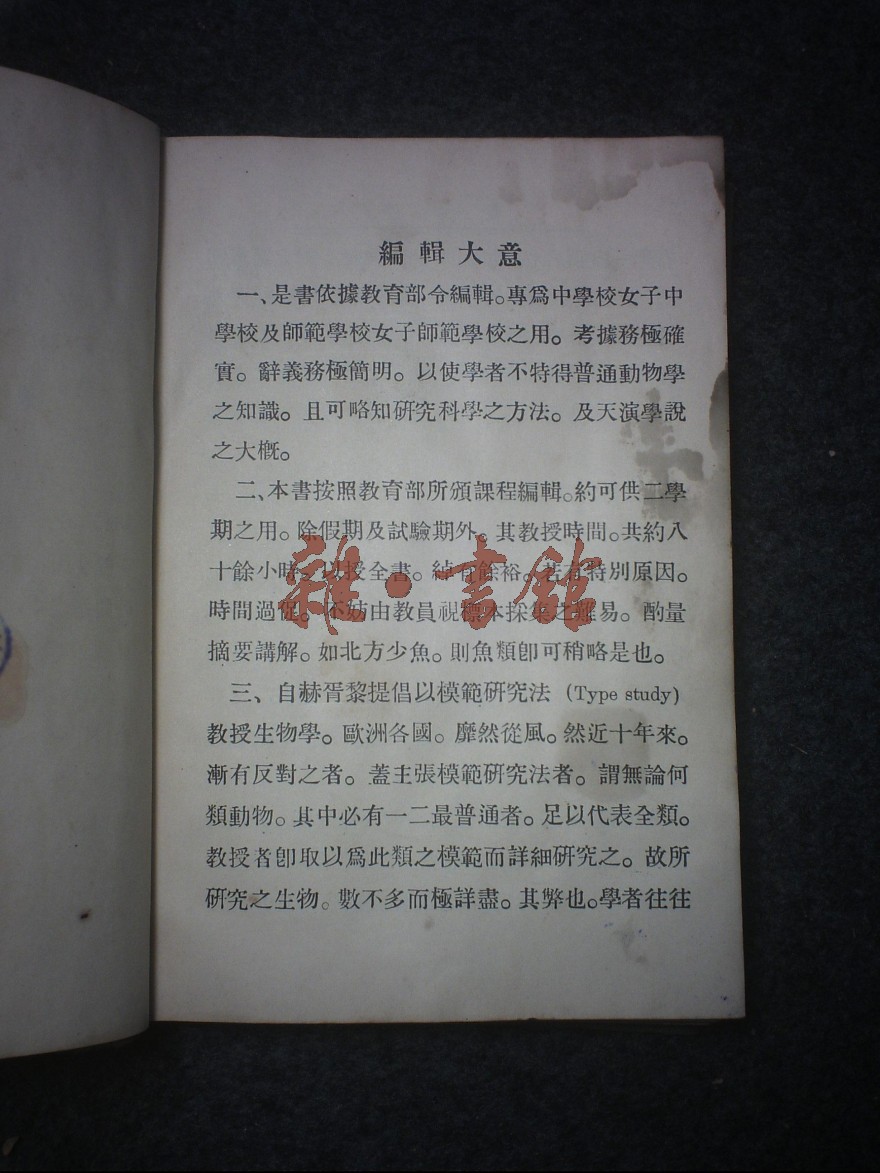 編輯大意
一、是書依據教育部令編輯。專爲中學校女子中
學校及師範學校女子師範學校之用。考據務極確
實。辭義務極簡明。以使學者不特得普通動物學
之知識。且可略知研究科學之方法。及天演學說
之大槪。
二、本書按照教育部所頒課程編輯。約可供二學
期之用。除假期及試驗期外。其教授時間。共約八
十餘小時。以授全書。綽有餘裕。若有特別原因。
時間過促。不妨由教員視標本採集之難易。酌量
摘要講解。如北方少魚。則魚類卽可稍略是也。
三、自赫胥黎提倡以模範研究法 (Type study)
教授生物學。歐洲各國。靡然從風。然近十年來。
漸有反對之者。蓋主張模範研究法者。謂無論何
類動物。其中必有一二最普通者。足以代表全類。
教授者卽取以爲此類之模範而詳細研究之。故所
研究之生物。數不多而極詳盡。其弊也。學者往往
雜·書館